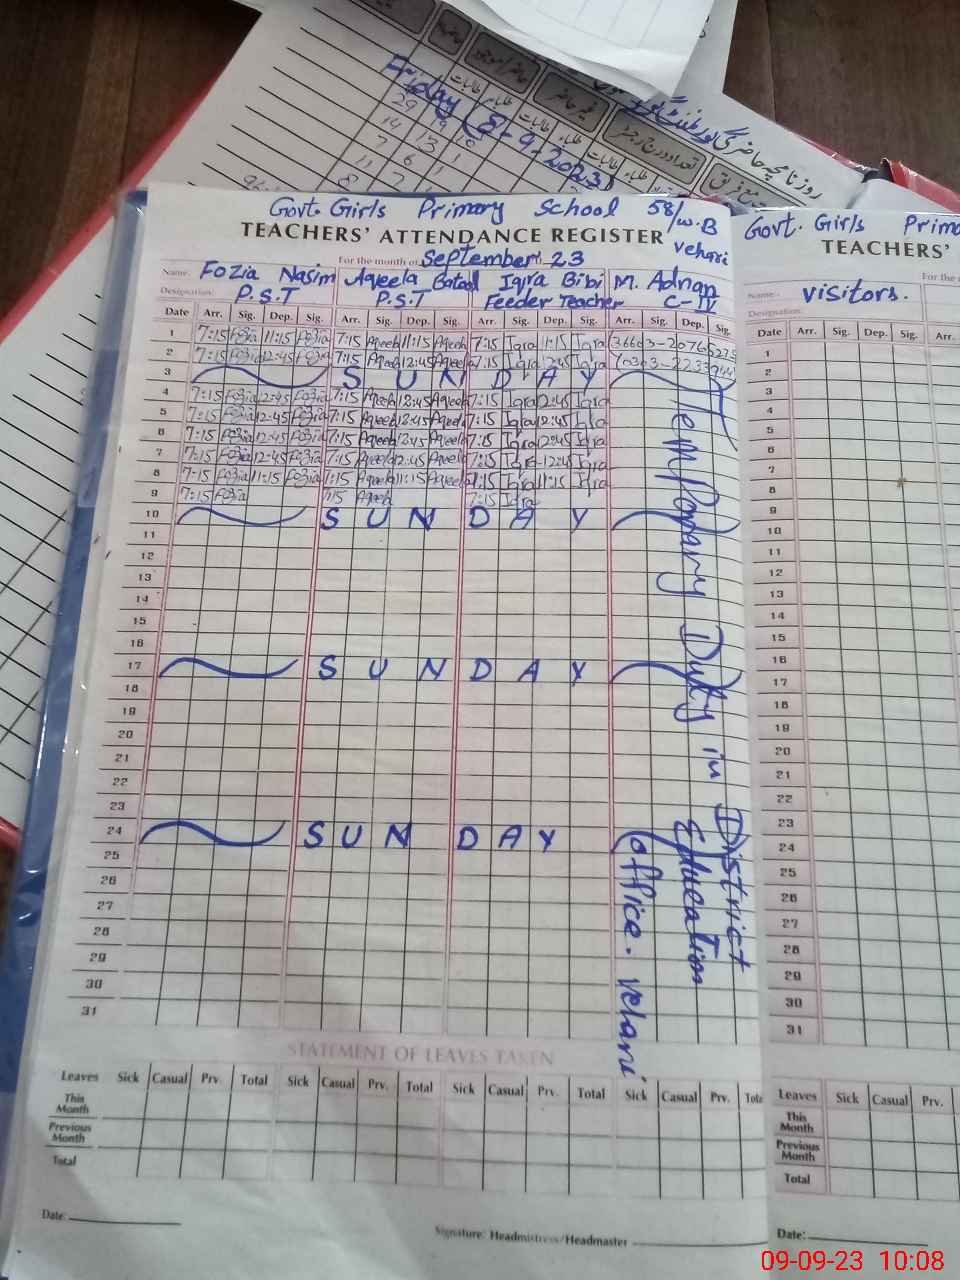 روزنامچہ حاضری گورنمنٹ
تعداد درج رجسٹر
غیر حاضر
حاضر / موجود
طلباء طالبات طلباء طالبات طلباء طالبات
Friday (8-9-2023)
29 19 10
14 13 1
7 6
11
Govt. Girls Primary School 58/W.B
Vehari
TEACHERS' ATTENDANCE REGISTER
For the month of September. 23
Name: Fozia Nasim Aqeela Batool Iqra Bibi M. Adnan
Designation: P.S.T P.S.T Feeder Teacher C-IV
Date Arr. Sig. Dep. Sig. Arr. Sig. Dep. Sig. Arr. Sig. Dep. Sig. Arr. Sig. Dep. Sig.
1 7:15 Fozia 11:15 Fozia 7:15 Aqeela 11:15 Aqeela 7:15 Iqra 11:15 Iqra
2 7:15 Fozia 12:45 Fozia 7:15 Aqeela 12:45 Aqeela 7:15 Iqra 12:45 Iqra
3 SUNDAY
4 7:15 Fozia 12:45 Fozia 7:15 Aqeela 12:45 Aqeela 7:15 Iqra 12:45 Iqra
5 7:15 Fozia 12:45 Fozia 7:15 Aqeela 12:45 Aqeela 7:15 Iqra 12:45 Iqra
6 7:15 Fozia 12:45 Fozia 7:15 Aqeela 12:45 Aqeela 7:15 Iqra 12:45 Iqra
7 7:15 Fozia 12:45 Fozia 7:15 Aqeela 12:45 Aqeela 7:15 Iqra 12:45 Iqra
8 7:15 Fozia 11:15 Fozia 7:15 Aqeela 11:15 Aqeela 7:15 Iqra 11:15 Iqra
9 7:15 Fozia 7:15 Aqeela 7:15 Iqra
10 SUNDAY
11
12
13
14
15
16
17 SUNDAY
18
19
20
21
22
23
24 SUNDAY
25
26
27
28
29
30
31
Temporary Duty in District
Education
office. vehari
STATEMENT OF LEAVES TAKEN
Leaves Sick Casual Prv. Total Sick Casual Prv. Total Sick Casual Prv. Total Sick Casual Prv.
This Month
Previous Month
Total
Date:
Signature: Headmistress/Headmaster
Govt. Girls
TEACHERS'
Name:- visitors.
Designation:
Date Arr. Sig. Dep. Sig. Arr.
1
2
3
4
5
6
7
8
9
10
11
12
13
14
15
16
17
18
19
20
21
22
23
24
25
26
27
28
29
30
31
Leaves Sick Casual Prv.
This Month
Previous Month
Total
Date:
09-09-23 10:08